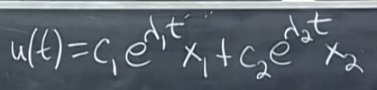 u(t) = c₁e^{λ₁t} x₁ + c₂e^{λ₂t} x₂